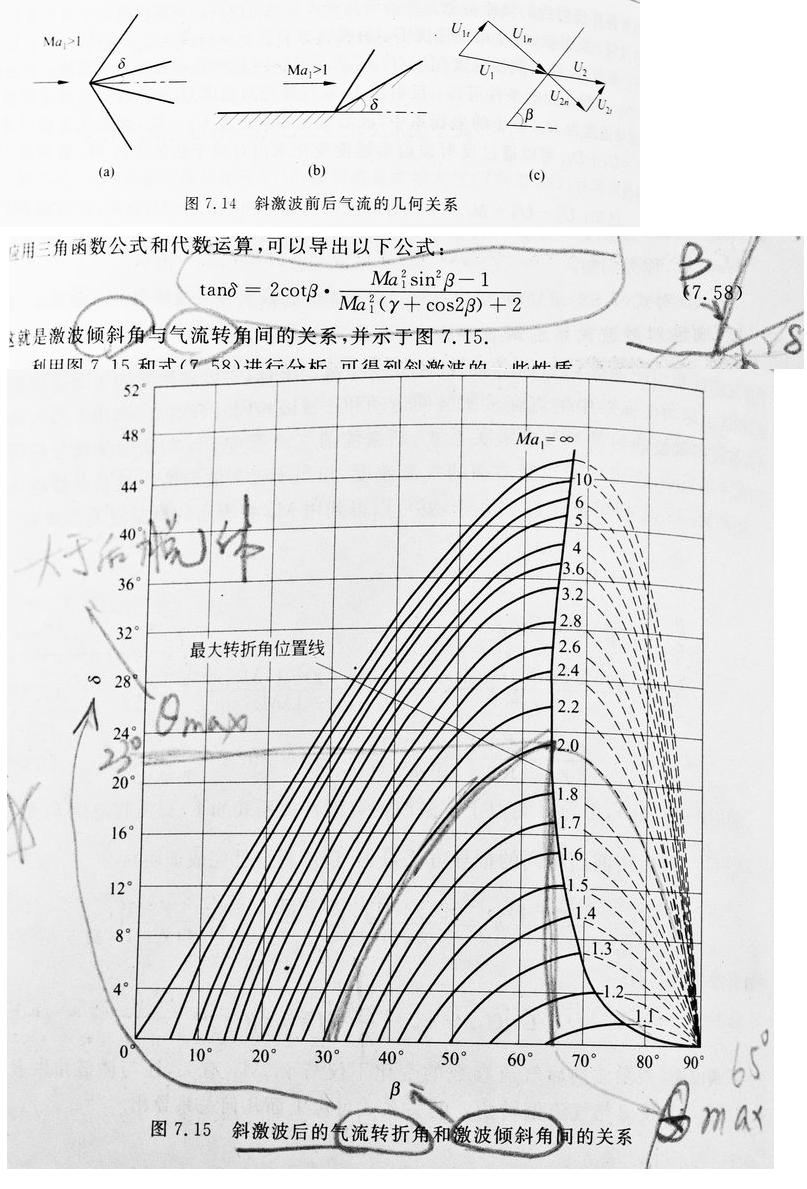 Ma₁>1
δ
(a)
Ma₁>1
δ
(b)
U₁t
U₁n
U₁
U₂
U₂n
U₂t
β
(c)
图 7.14 斜激波前后气流的几何关系
应用三角函数公式和代数运算,可以导出以下公式:
tanδ = 2cotβ · (Ma₁²sin²β − 1) / (Ma₁²(γ + cos2β) + 2)
(7.58)
β
δ
这就是激波倾斜角与气流转角间的关系,并示于图 7.15.
利用图 7.15 和式(7.58)进行分析,可得到斜激波的一些性质
52°
48°
44°
40°
36°
32°
28°
24°
20°
16°
12°
8°
4°
0°
δ
Ma₁=∞
10
6
5
4
3.6
3.2
2.8
2.6
2.4
2.2
2.0
1.8
1.7
1.6
1.5
1.4
1.3
1.2
1.1
最大转折角位置线
大于后脱体
θmax
23°
10°
20°
30°
40°
50°
60°
70°
80°
90°
β
65°
max
图 7.15 斜激波后的气流转折角和激波倾斜角间的关系